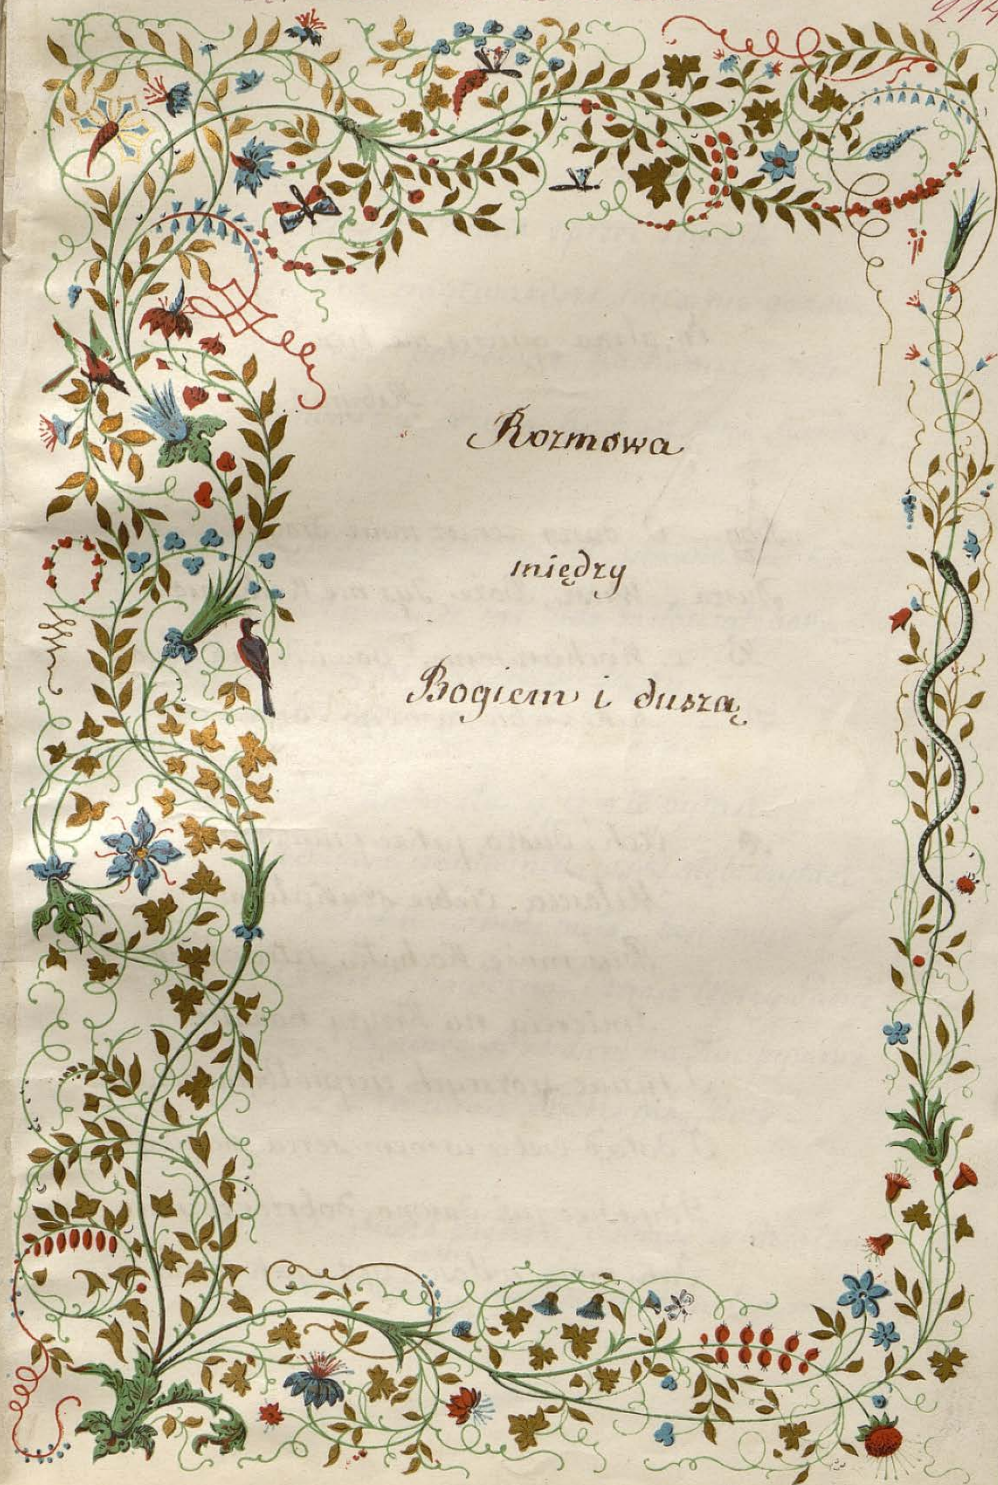 Rozmowa
między
Bogiem i duszą